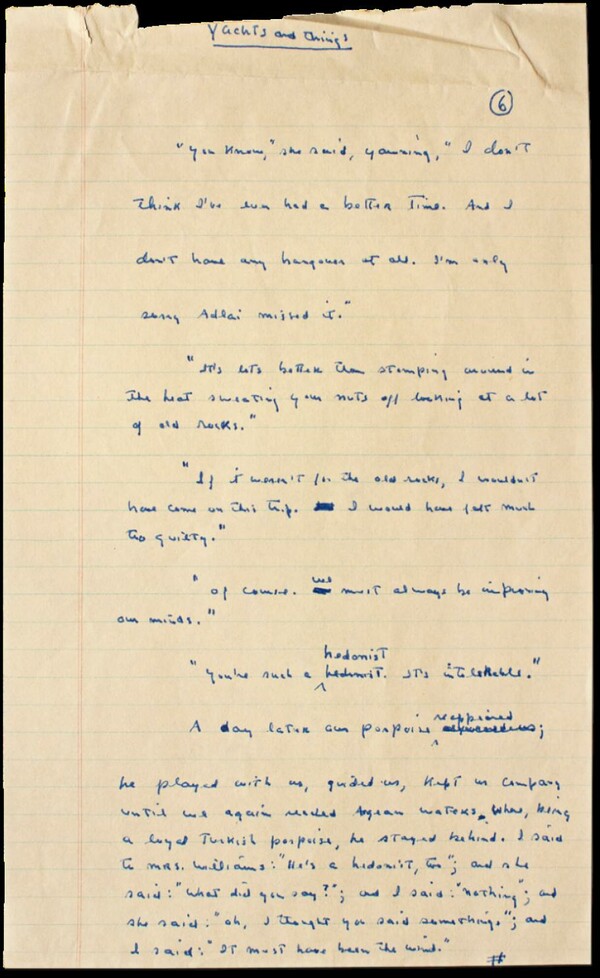 Yachts and Things
6
"You know," she said, yawning, "I don't
think I've ever had a better time. And I
don't have any hangover at all. I'm only
sorry Adlai missed it."
"It's lots better than stomping around in
the heat sweating your nuts off looking at a lot
of old rocks."
"If it weren't for the old rocks, I wouldn't
have come on this trip. I would have felt much
too guilty."
"Of course. we must always be improving
our minds."
hedonist
"You're such a hedonist. It's intolerable."
reappeared
A day later our porpoise ;
he played with us, guided us, kept us company
until we again reached Agean waters. Where, being
a loyal Turkish porpoise, he stayed behind. I said
to Mrs. Williams: "He's a hedonist, too"; and she
said: "What did you say?"; and I said: "nothing"; and
she said: "oh, I thought you said something."; and
I said: "It must have been the wind."
#